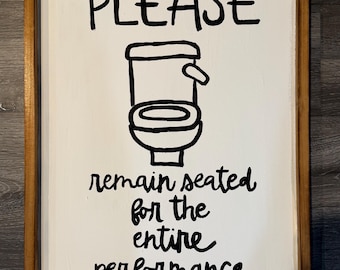 PLEASE
remain seated
for the
entire
performance